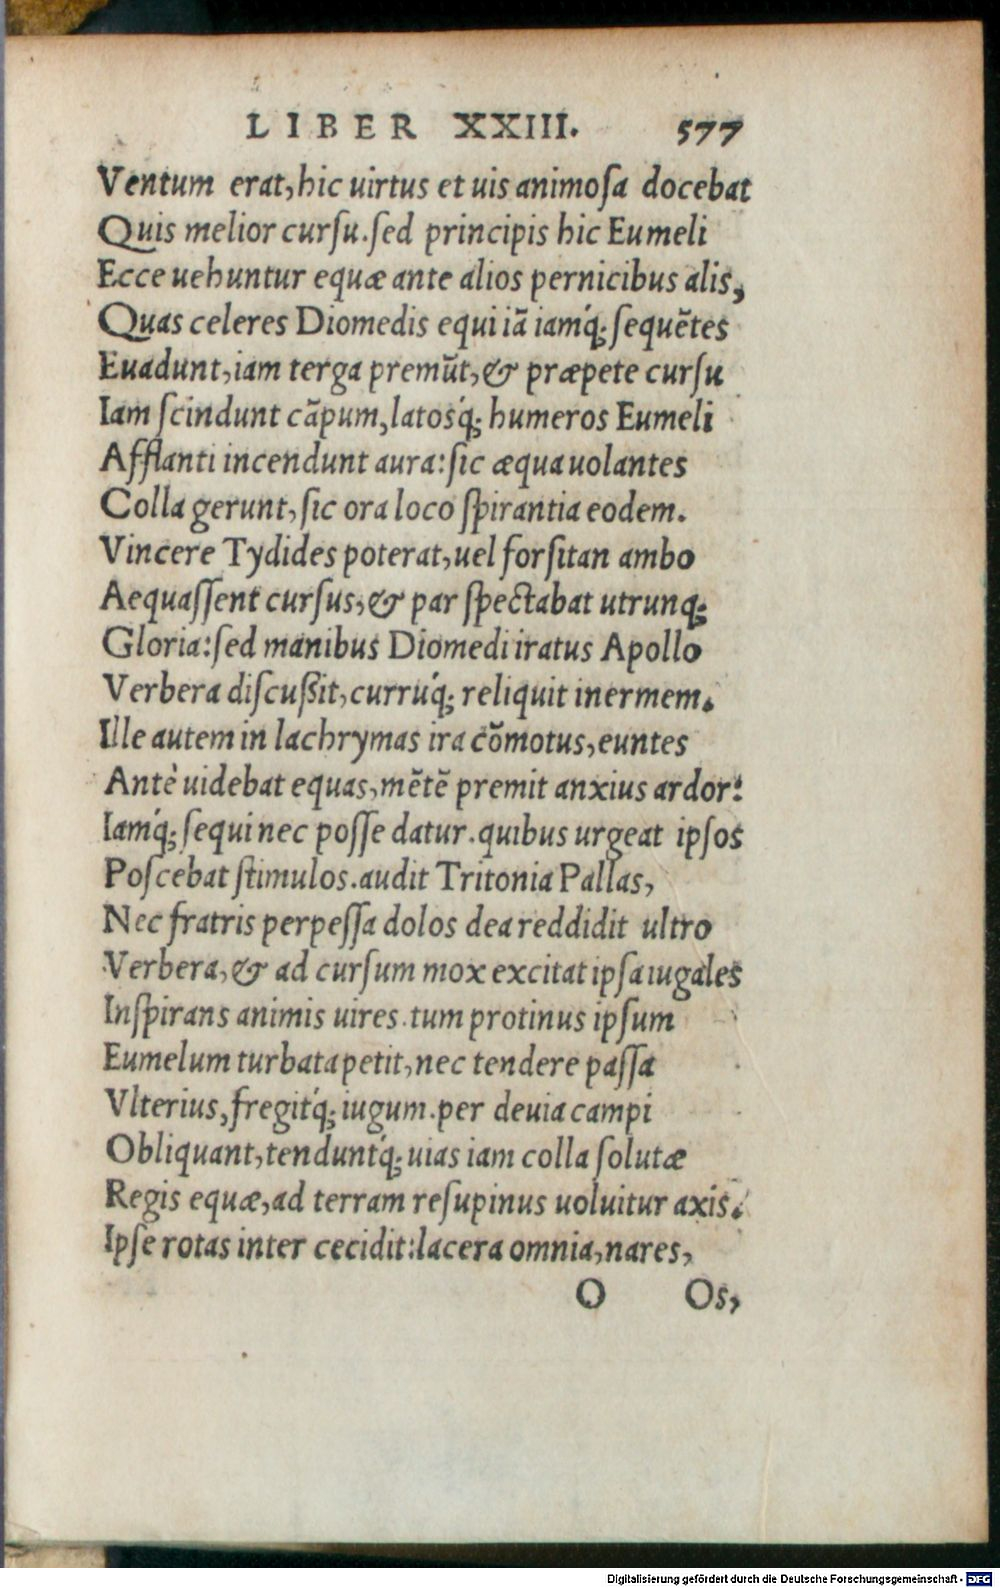 LIBER XXIII. 577
Ventum erat, hic uirtus et uis animoſa docebat
Quis melior curſu. ſed principis hic Eumeli
Ecce uehuntur equæ ante alios pernicibus alis,
Quas celeres Diomedis equi iã iamq́; ſequẽtes
Euadunt, iam terga premũt, & præpete curſu
Iam ſcindunt cãpum, latosq́; humeros Eumeli
Afflanti incendunt aura: ſic æqua uolantes
Colla gerunt, ſic ora loco ſpirantia eodem.
Vincere Tydides poterat, uel forſitan ambo
Aequaſſent curſus, & par ſpectabat utrunq;
Gloria: ſed manibus Diomedi iratus Apollo
Verbera diſcußit, curruq́; reliquit inermem.
Ille autem in lachrymas ira cõmotus, euntes
Antè uidebat equas, mẽtẽ premit anxius ardor:
Iamq́; ſequi nec poſſe datur. quibus urgeat ipſos
Poſcebat ſtimulos. audit Tritonia Pallas,
Nec fratris perpeſſa dolos dea reddidit ultro
Verbera, & ad curſum mox excitat ipſa iugales
Inſpirans animis uires. tum protinus ipſum
Eumelum turbata petit, nec tendere paſſa
Vlterius, fregitq́; iugum. per deuia campi
Obliquant, tenduntq́; uias iam colla ſolutæ
Regis equæ, ad terram reſupinus uoluitur axis.
Ipſe rotas inter cecidit: lacera omnia, nares,
O Os,
Digitalisierung gefördert durch die Deutsche Forschungsgemeinschaft - DFG